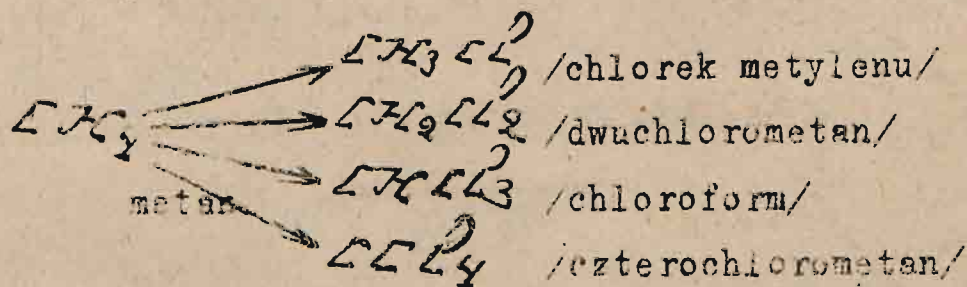 CH3Cl /chlorek metylenu/
CH4 CH2Cl2 /dwuchlorometan/
metan CHCl3 /chloroform/
CCl4 /czterochlorometan/